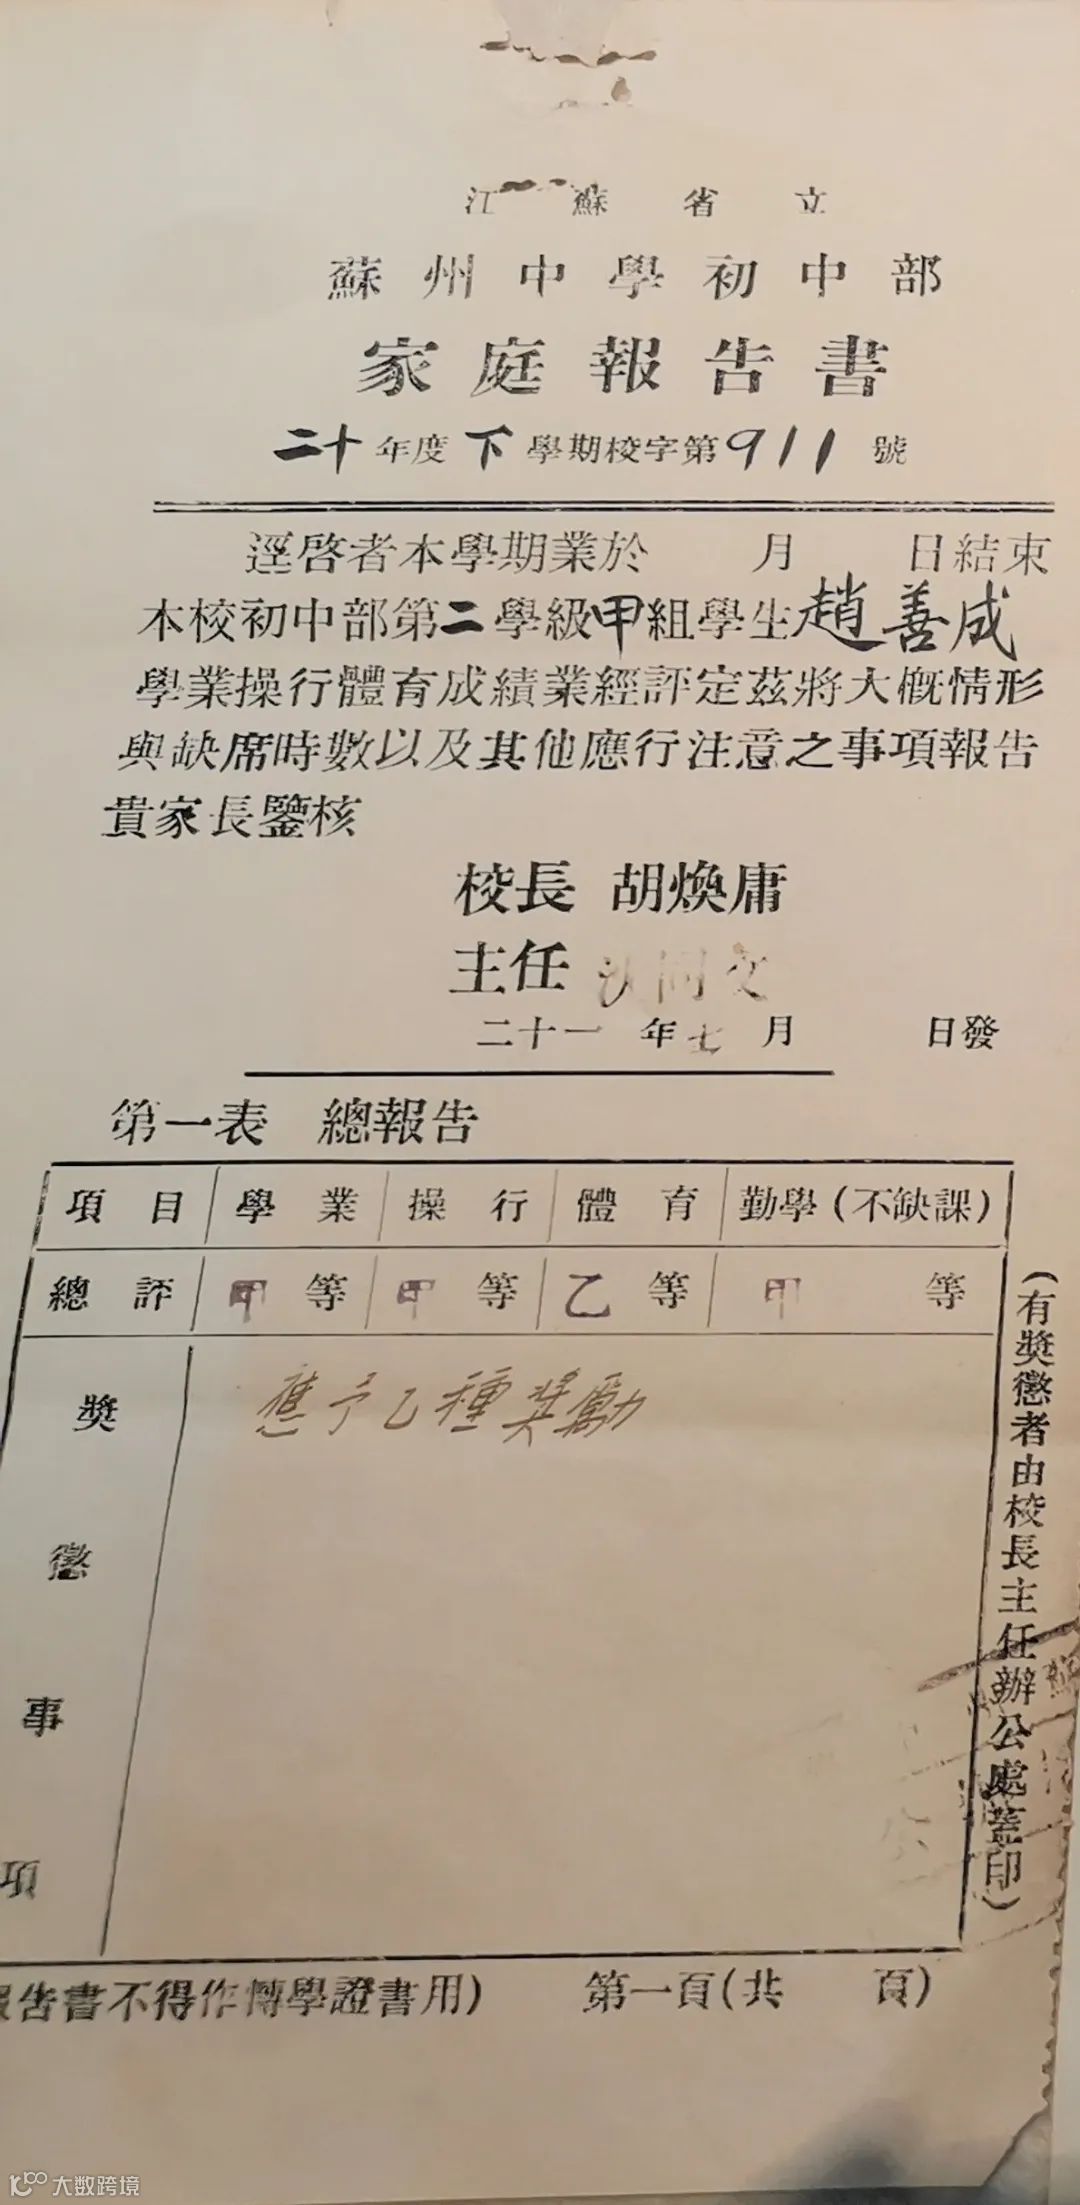 江蘇省立
蘇州中學初中部
家庭報告書
二十年度下學期校字第911號
逕啓者本學期業於 月 日結束
本校初中部第二學級甲組學生趙善成
學業操行體育成績業經評定茲將大概情形
與缺席時數以及其他應行注意之事項報告
貴家長鑒核
校長 胡煥庸
主任
二十一年七月 日發
第一表 總報告
項目 學業 操行 體育 勤學(不缺課)
總評 甲等 甲等 乙等 甲等
獎懲事項
應予乙種獎勵
(有獎懲者由校長主任辦公處蓋印)
報告書不得作轉學證書用) 第一頁(共 頁)
大数跨境